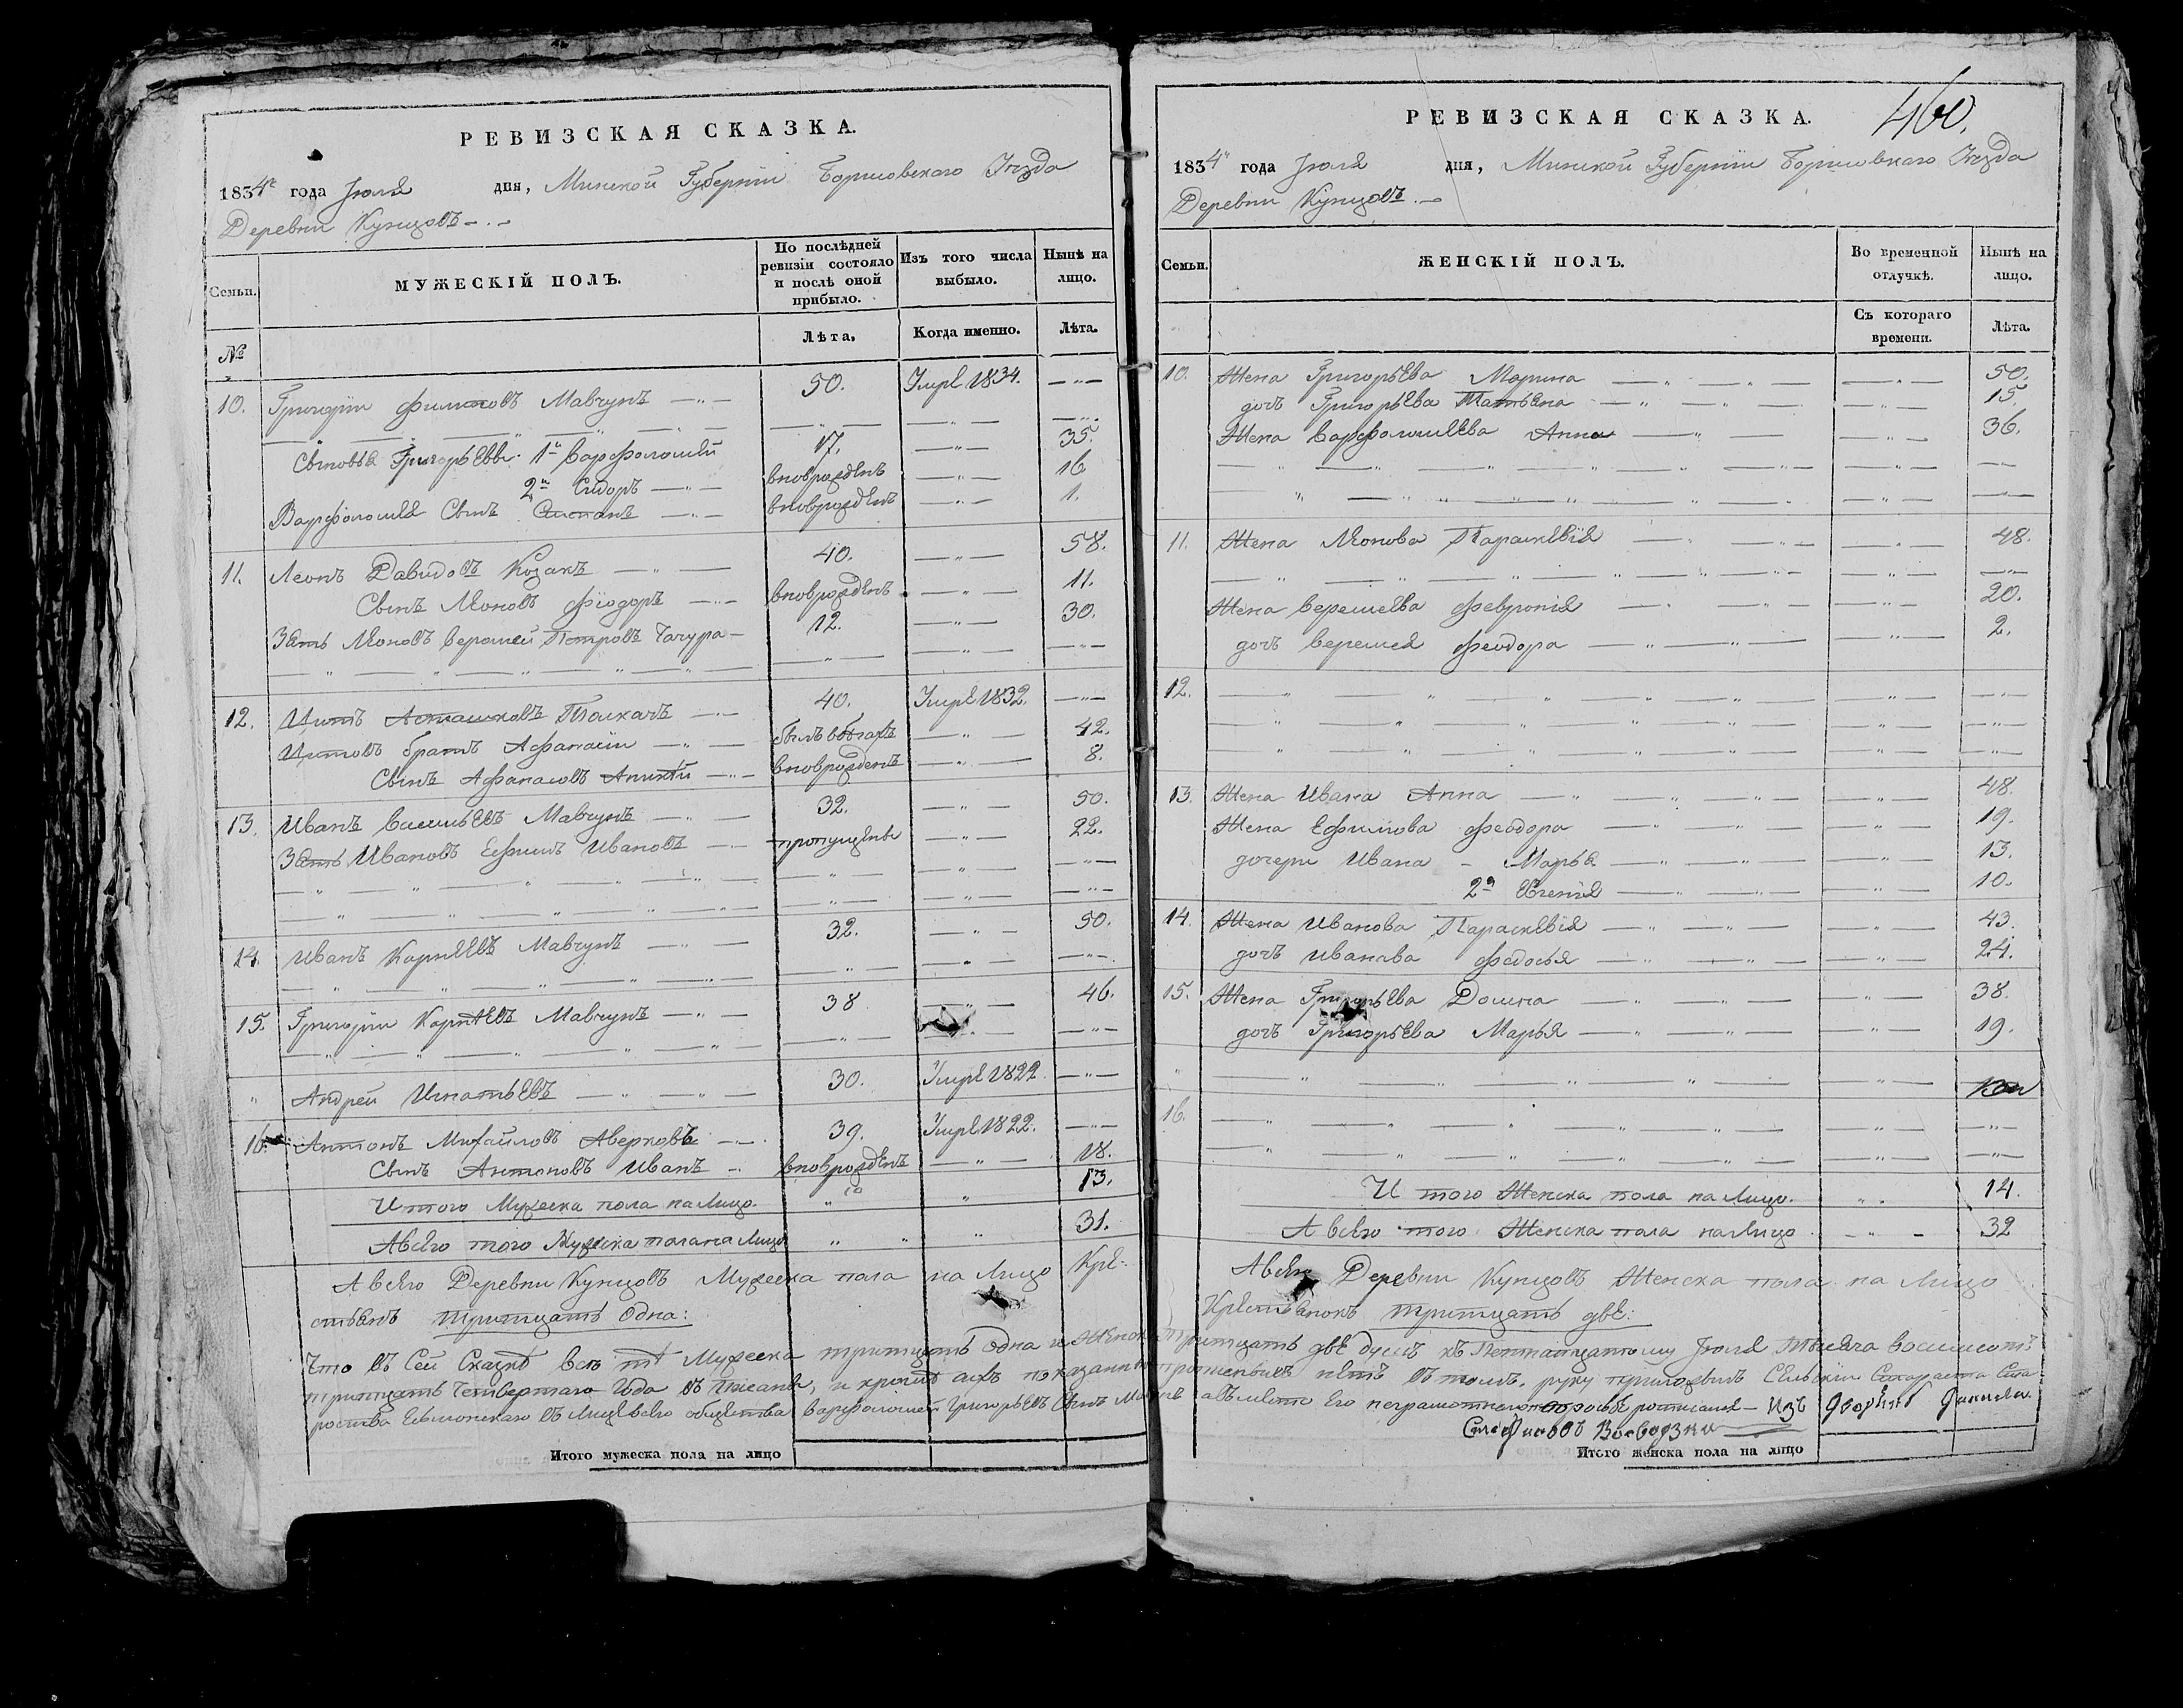 РЕВИЗСКАЯ СКАЗКА.
1834го года Июля дня, Минской Губерніи Борисовскаго Уѣзда
Деревни Кунцовъ
Семьи.
МУЖЕСКІЙ ПОЛЪ.
По послѣдней ревизіи состояло и послѣ оной прибыло.
Изъ того числа выбыло.
Нынѣ на лицо.
№
Лѣта.
Когда именно.
Лѣта.
10. Григорій Филиповъ Мавчунъ 50. Умре 1834.
Сыновья Григорьевы 1й Варфоломей 17. 35.
2й Сидоръ вноврожденъ 16
Варфоломея Сынъ Степанъ вноврожденъ 1.
11. Леонъ Давидовъ Козакъ 40. 58.
Сынъ Леоновъ Фіодоръ вноврожденъ 11.
Зять Леоновъ Веремей Петровъ Бачура 12. 30.
12. Титъ Асташковъ Ткачъ 40. Умре 1832.
Титовъ братъ Афанасій былъ въ бѣгахъ 42.
Сынъ Афанасовъ Аникій вноврожденъ 8.
13. Иванъ Васильевъ Мавчунъ 32. 50.
Зять Ивановъ Ефимъ Ивановъ пропущенъ 22.
14. Иванъ Корнѣевъ Мавчунъ 32. 50.
15. Григорій Корнѣевъ Мавчунъ 38 46.
Андрей Игнатьевъ 30. Умре 1822.
16. Антонъ Михайловъ Аверковъ 39. Умре 1822.
Сынъ Антоновъ Иванъ вноврожденъ 18.
Итого Мужеска пола на Лицо. 13.
А всего того Мужеска пола на Лицо 31.
А всего Деревни Кунцовъ Мужеска пола на Лицо Кре-
стьянъ тритцать одна:
Итого мужеска пола на лицо
РЕВИЗСКАЯ СКАЗКА.
460.
1834го года Июля дня, Минской Губерніи Борисовскаго Уѣзда
Деревни Кунцовъ
Семьи.
ЖЕНСКІЙ ПОЛЪ.
Во временной отлучкѣ.
Нынѣ на лицо.
Съ котораго времени.
Лѣта.
10. Жена Григорьева Марина 50.
дочь Григорьева Татьяна 15.
Жена Варфоломеева Анна 36.
11. Жена Леонова Параскевія 48.
Жена Веремеева Февронія 20.
дочь Веремея Феодора 2.
12.
13. Жена Ивана Анна 48.
Жена Ефимова Феодора 19.
дочери Ивана Марья 13.
2я Евгенія 10.
14. Жена Иванова Параскевія 43.
дочь Иванова Федосья 24.
15. Жена Григорьева Домна 38.
дочь Григорьева Марья 19.
16.
И того Женска пола на Лицо. 14.
А всего того Женска пола на Лицо 32
А всего Деревни Кунцовъ Женска пола на Лицо
Крестьянокъ тритцать две:
Что въ Сей Сказкѣ всѣ тѣ Мужеска тритцать одна и Женска тритцать две душъ къ Пятнатцатому Июля Тысяча восимсотъ
тритцать Четвертаго Года въ писаны, и кромѣ ихъ показанныхъ нѣтъ въ томъ. руку приложилъ Сельскій Староста
общества Варфоломей Григорьевъ Сынъ Мавчунъ а вмѣсто Его неграмотнаго по просьбѣ росписался Изъ Дворянъ
Итого женска пола на лицо